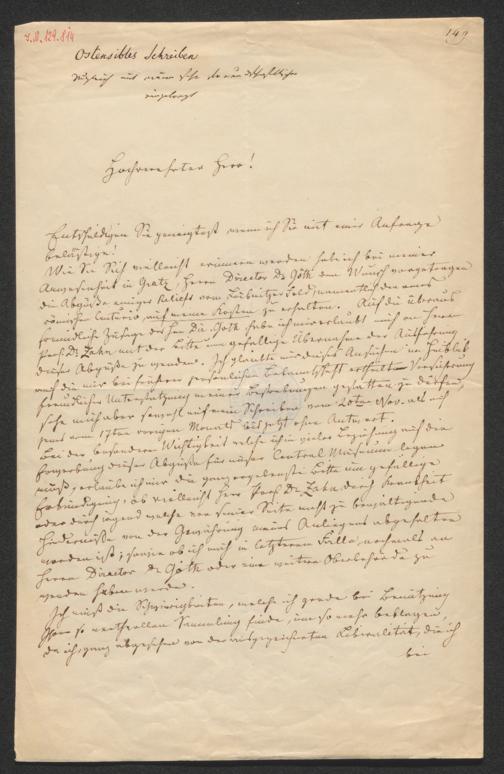 J.N. 129.814
149
Ostensibles Schreiben
Hochverehrter Herr!
Entschuldigen Sie geneigtest, wenn ich Sie mit einer Anfrage
belästige!
Wie Sie Sich vielleicht erinnern werden habe ich bei meiner
Anwesenheit in Gratz, Herrn Director Dr Göth den Wunsch vorgetragen
die Abgüße einiger Reliefs vom Leibnitzer Feld, namentlich den eines
römischen Centurio, auf meine Kosten zu erhalten. Auf die überaus
freundliche Zusage des Hn Dir. Göth habe ich mir erlaubt mich an Herrn
Prof. Dr. Zahn mit der Bitte um gefällige Übernahme der Ausführung
dieser Abgüße zu wenden. Ich glaubte mir dieses Ansuchen im Hinblick
auf die mir bei früherer persönlichen Bekanntschaft eröffnete Versicherung
freundlicher Unterstützung meiner Bestrebungen gestatten zu dürfen,
sehe mich aber sowohl auf mein Schreiben vom 20ten Nov. als auf
jenes vom 17ten vorigen Monats bis jetzt ohne Antwort.
Bei der besondern Wichtigkeit welche ich in vieler Beziehung auf die
Erwerbung dieser Abgüße für unser Central Museum legen
muß, erlaube ich mir die ganz ergebenste Bitte um gefällige
Erkundigung, ob vielleicht Herr Prof. Dr. Zahn durch Krankheit
oder durch irgend welche von seiner Seite nicht zu bewältigende
Hinderniße von der Gewährung meines Anliegens abgehalten
worden ist; sowie ob ich mich in letzterem Falle, nochmals an
Herrn Director Dr Göth oder eine weitere Oberbehörde zu
wenden haben werde.
Ich muß die Schwierigkeiten, welche ich gerade bei Benützung
so werthvollen Sammlung finde, um so mehr beklagen,
da ich, ganz abgesehen von der ausgezeichneten Liberalität, die ich
bei